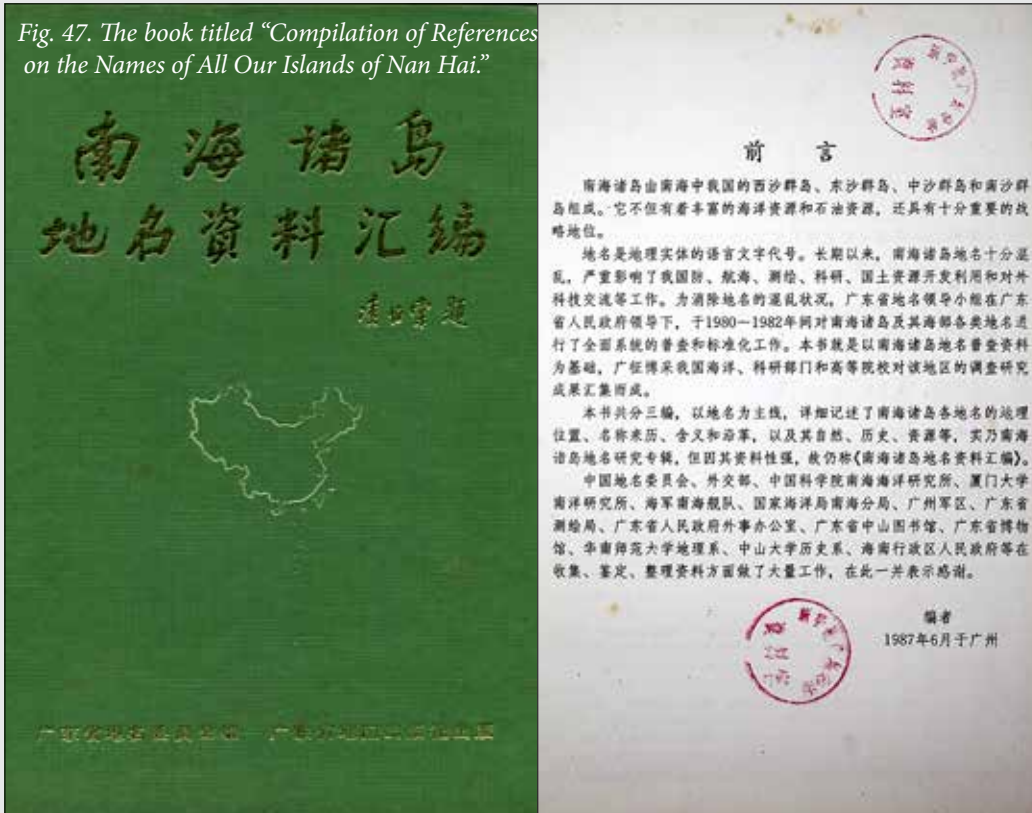 Fig. 47. The book titled “Compilation of References
on the Names of All Our Islands of Nan Hai.”
南海诸岛
地名資料汇编
前 言
南海诸岛由南海中我国的西沙群岛、东沙群岛、中沙群岛和南沙群
岛组成。它不但有着丰富的海洋资源和石油资源，还具有十分重要的战
略地位。
地名是地理实体的语言文字代号。长期以来，南海诸岛地名十分混
乱，严重影响了我国防、航海、测绘、科研、国土资源开发利用和对外
科技交流等工作。为消除地名的混乱状况，广东省地名领导小组在广东
省人民政府领导下，于1980—1982年间对南海诸岛及其海部各类地名进
行了全面系统的普查和标准化工作。本书就是以南海诸岛地名普查资料
为基础，广征博采我国海洋、科研部门和高等院校对该地区的调查研究
成果汇集而成。
本书共分三编，以地名为主线，详细记述了南海诸岛各地名的地理
位置、名称来历、含义和沿革，以及其自然、历史、资源等，实乃南海
诸岛地名研究专辑，但因其资料性强，故仍称《南海诸岛地名资料汇编》。
中国地名委员会、外交部、中国科学院南海海洋研究所、厦门大学
南洋研究所、海军南海舰队、国家海洋局南海分局、广州军区、广东省
测绘局、广东省人民政府外事办公室、广东省中山图书馆、广东省博物
馆、华南师范大学地理系、中山大学历史系、海南行政区人民政府等在
收集、鉴定、整理资料方面做了大量工作，在此一并表示感谢。
编者
1987年6月于广州
资料室